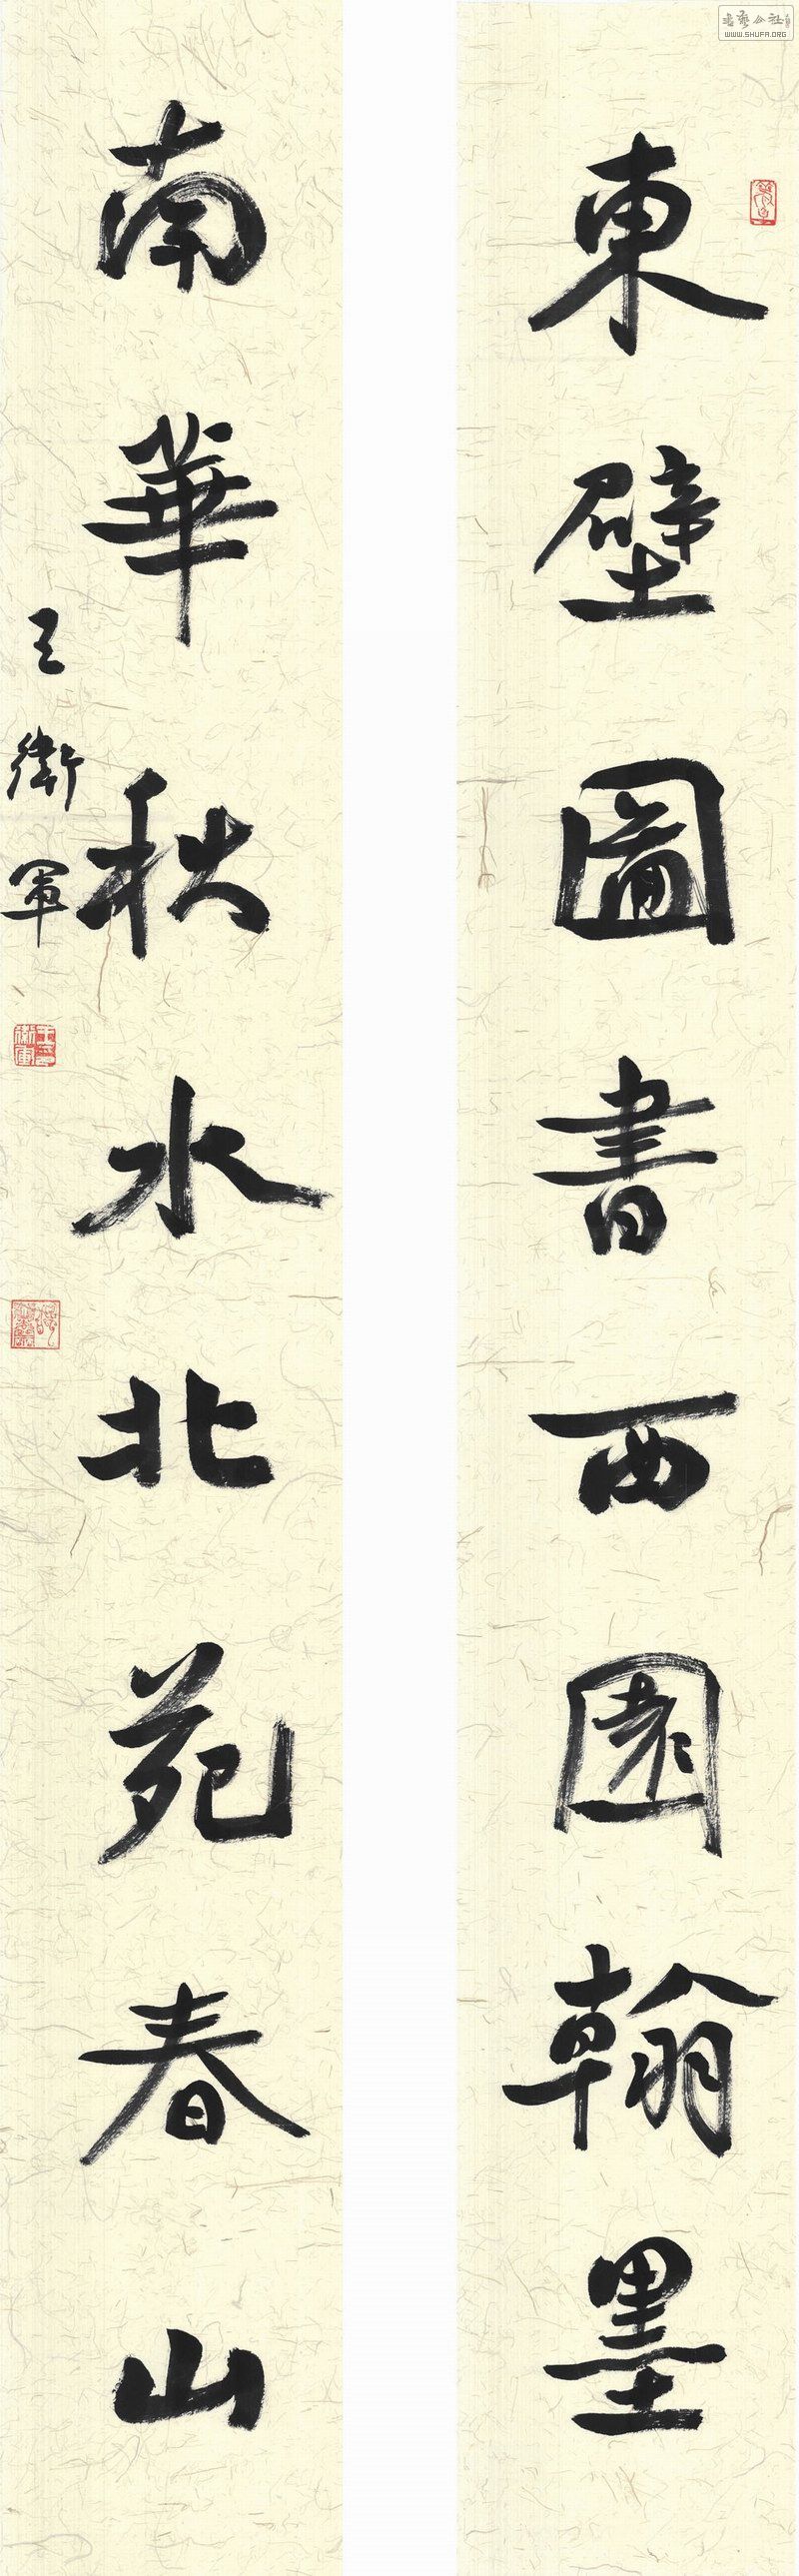 東壁圖書西園翰墨
南華秋水北苑春山
王衛軍
王衛軍
書藝公社
WWW.SHUFA.ORG